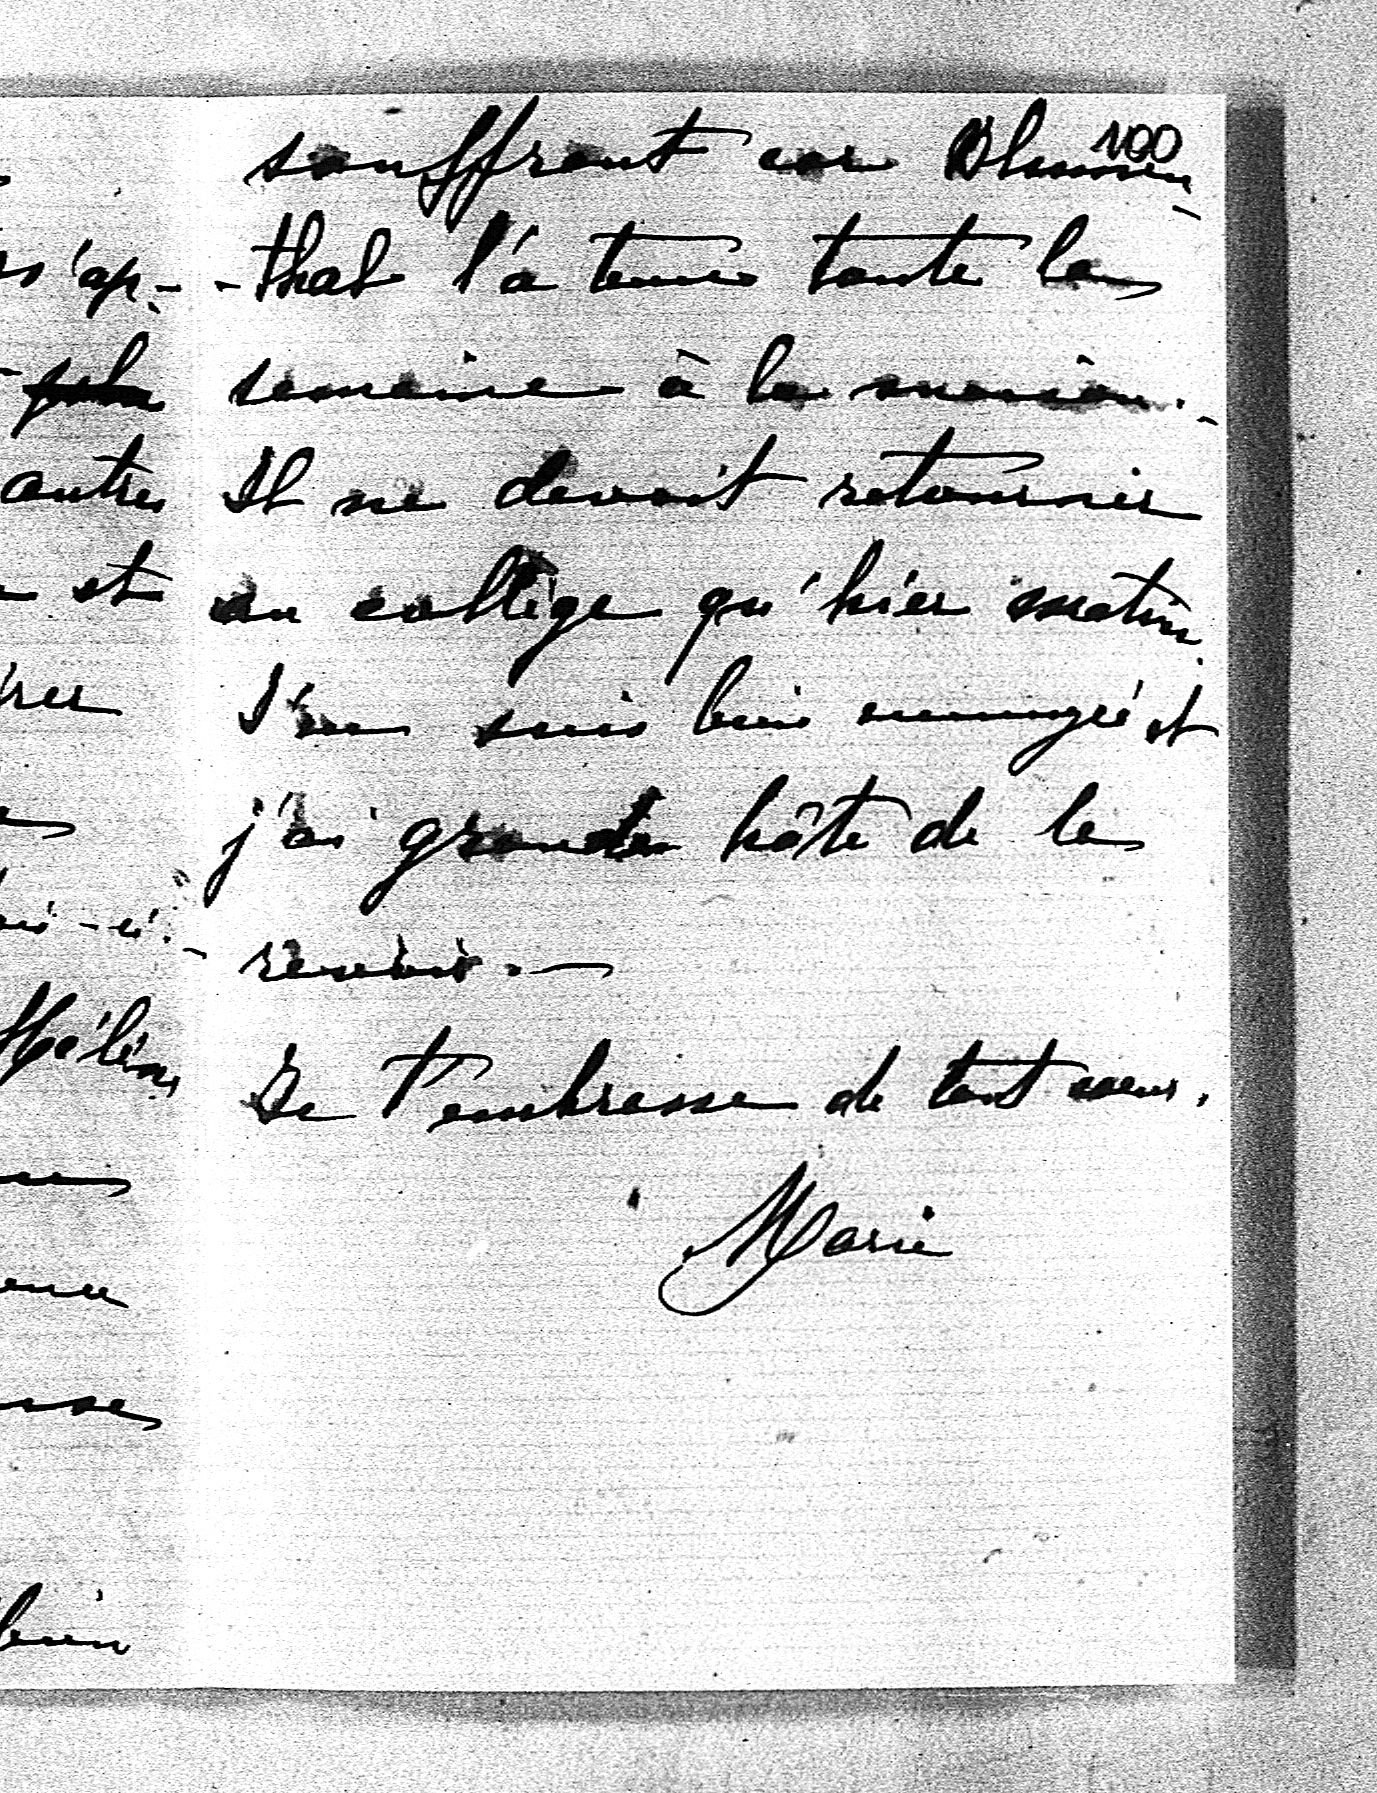 100
souffrant car Blumen-
-thal l'a tenu toute la
semaine à la maison.-
Il ne devait retourner
au collège qu'hier matin.
J'en suis bien ennuyée et
j'ai grande hâte de le
revoir.—
Je t'embrasse de tout coeur.
Marie
s'ap-
autres
et
rer
Hélène
bien